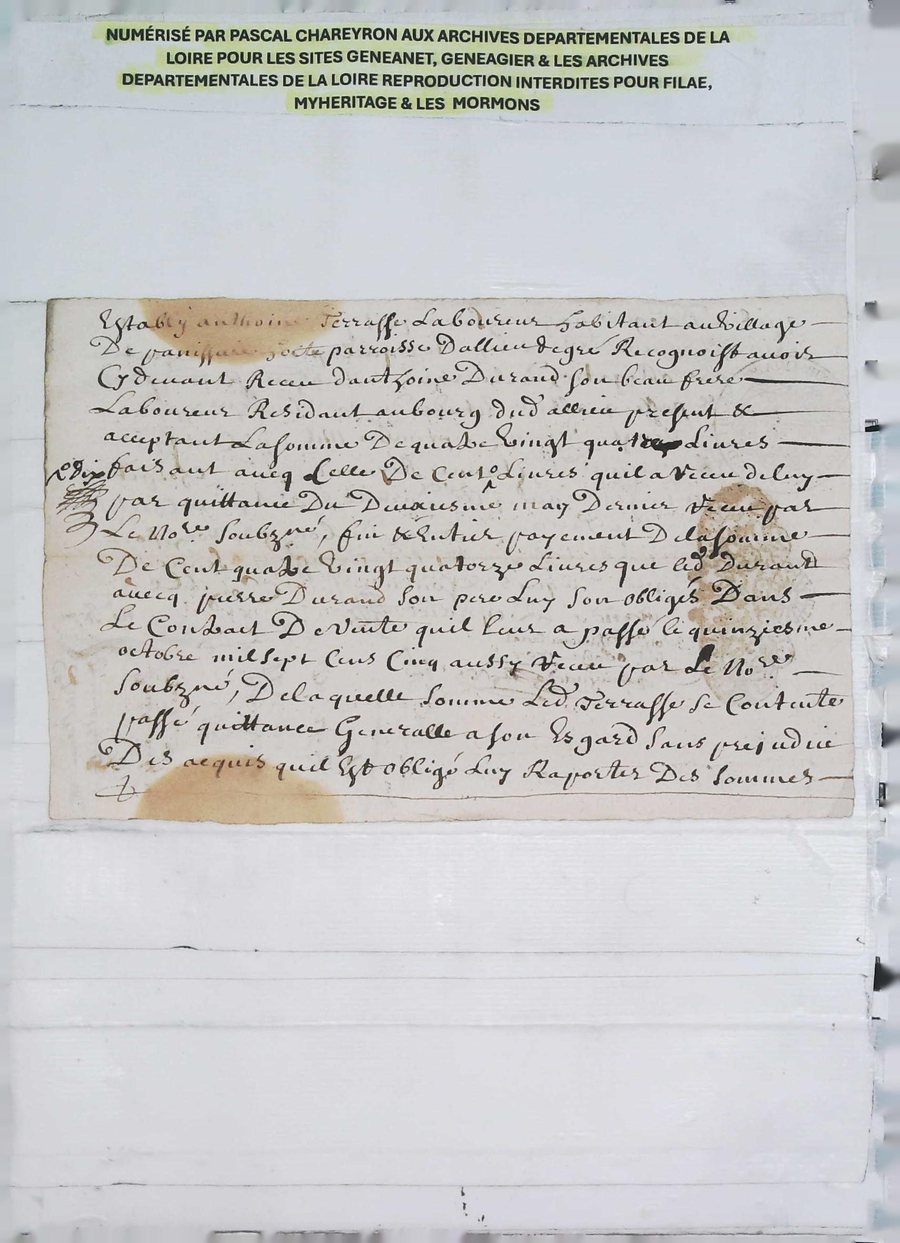 NUMÉRISÉ PAR PASCAL CHAREYRON AUX ARCHIVES DEPARTEMENTALES DE LA
LOIRE POUR LES SITES GENEANET, GENEAGIER & LES ARCHIVES
DEPARTEMENTALES DE LA LOIRE REPRODUCTION INTERDITES POUR FILAE,
MYHERITAGE & LES MORMONS
Establÿ anthoine Terrasse Laboureur habitant au Village
De parroisse Dallieu de gré Recognoist avoir
Cy devant Receu danthoine Durand son beau frere
Laboureur Residant au bourg dud' allieu present &
acceptant La somme De quatre Vingt quatre Livres
faisant avecq Celle De Cent Livres quil a receu de luy
par quittance Du may Dernier receu par
Le Nore Soubzné, fin & Entier payement De la somme
De Cent quatre Vingt quatorze Livres que led Durand
avecq pierre Durand Son pere Luy Son obligés Dans
Le Contract De Vente quil leur a passé le quinziesme
octobre mil sept Cens Cinq aussy receu par Le Nore
Soubzné, De laquelle somme Led Terrasse se Contente
passé quittance Generalle a son Esgard Sans prejudice
Des acquis quil Est obligé Luy Raporter Des Sommes